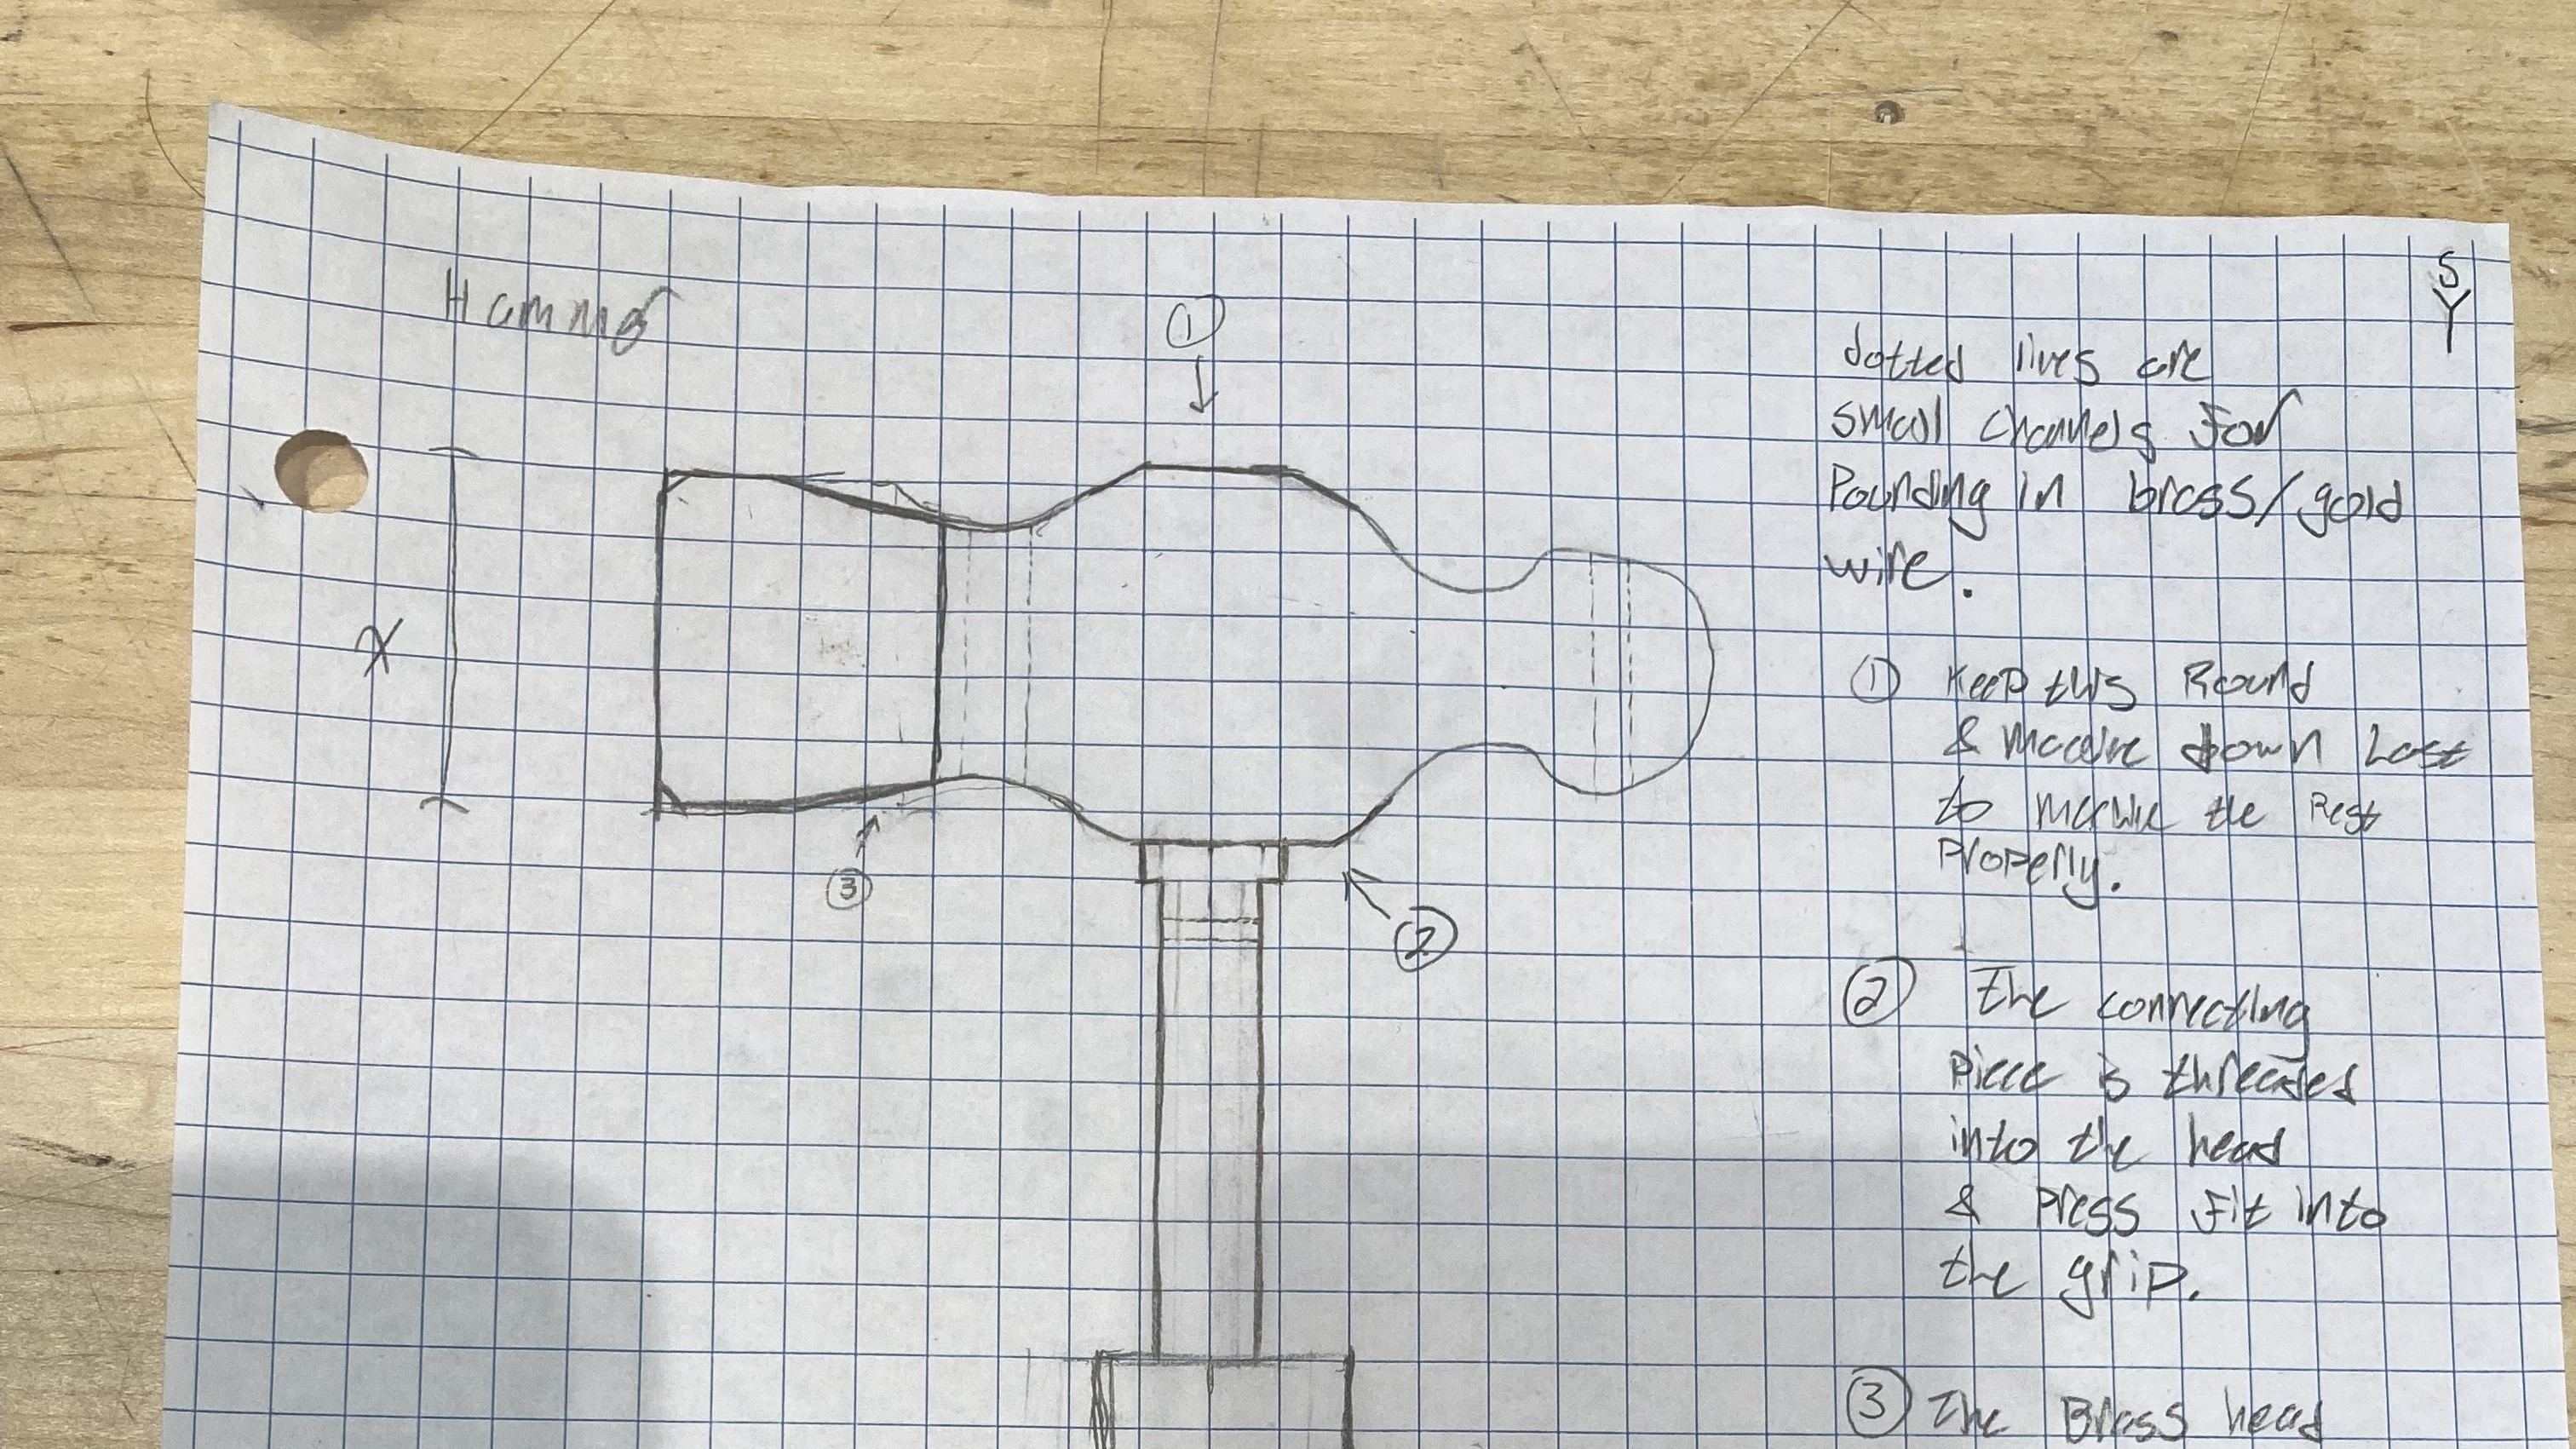 Hammer
S
Y
①
X
③
②
dotted lines are
small channels For
Pounding in brass/gold
wire.
① Keep this Round
& machine down Last
to machine the Rest
Properly.
② The connecting
Piece is threaded
into the head
& Press Fit into
the grip.
③ The Brass head